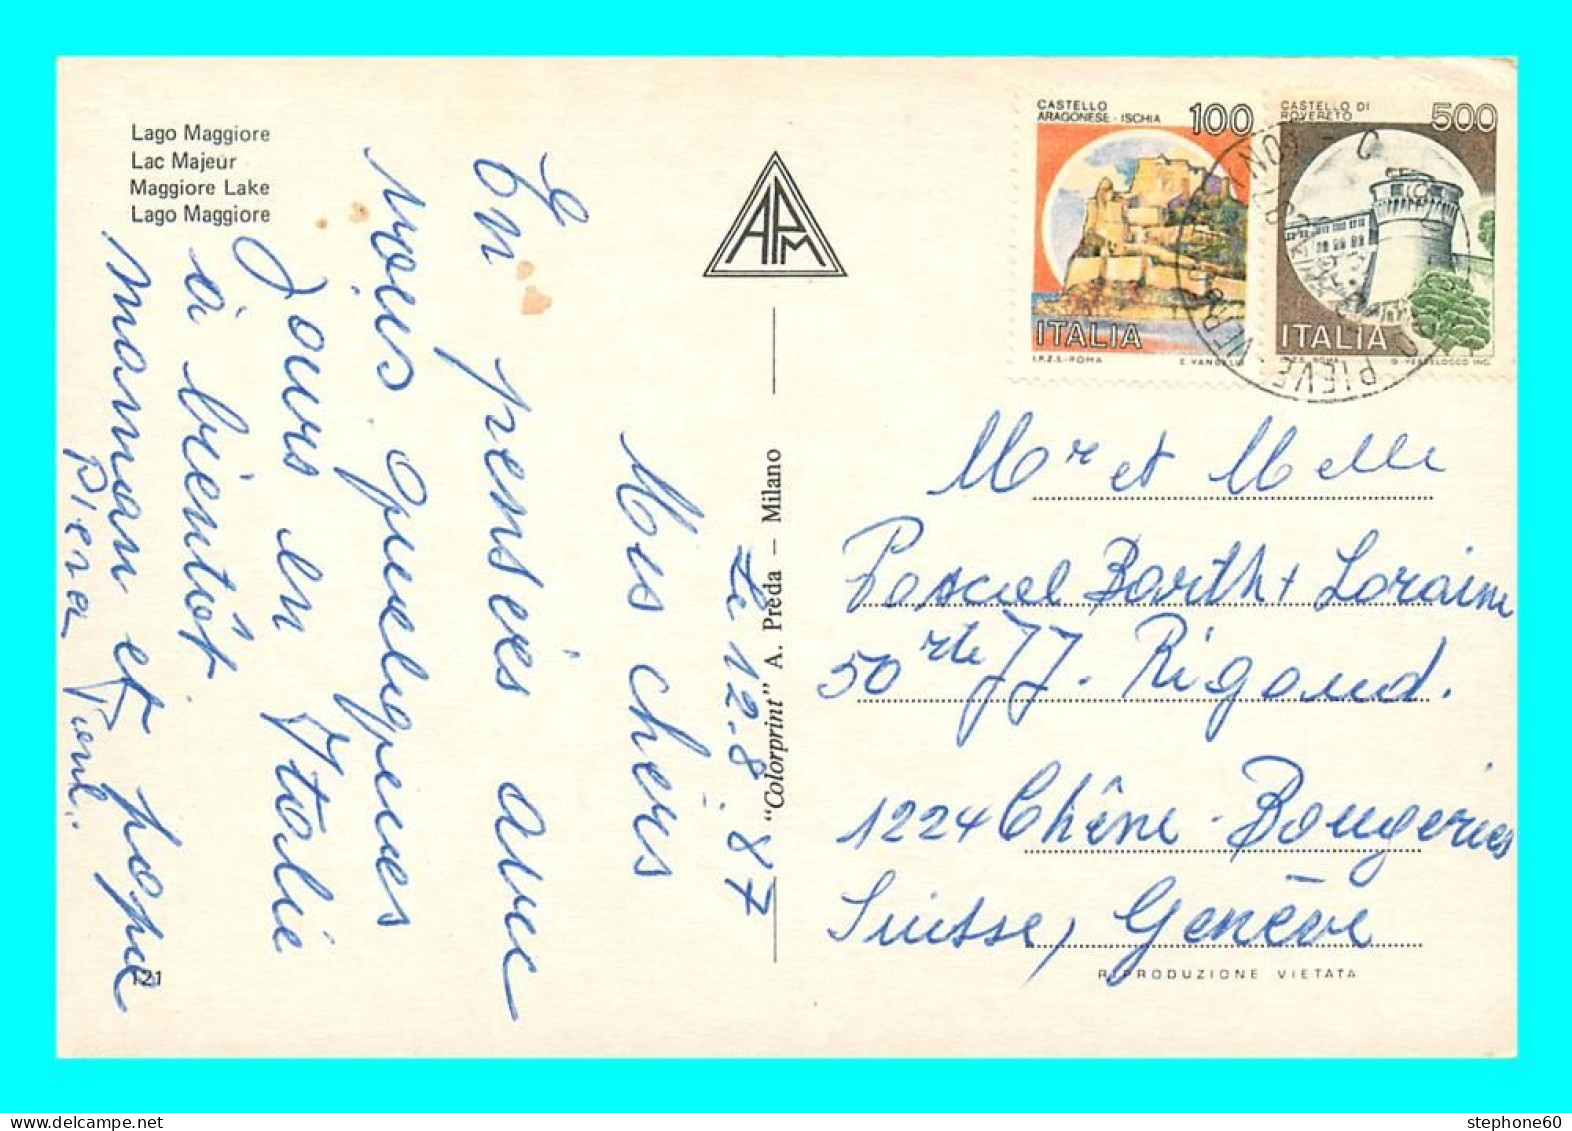 Lago Maggiore
Lac Majeur
Maggiore Lake
Lago Maggiore
Le 12.8.87
Mes chers
En pensées avec
vous quelques
Jours en Italie
à bientôt
maman et papa
Piera
121
APM
"Colorprint" A. Preda – Milano
CASTELLO
ARAGONESE - ISCHIA
100
ITALIA
I.P.Z.S. - ROMA
CASTELLO DI
ROVERETO
500
ITALIA
PIEVE
Mr et Melle
Pascal Barth + Loraine
50 rte JJ. Rigaud.
1224 Chêne-Bougeries
Suisse, Genève
RIPRODUZIONE VIETATA
stephone60